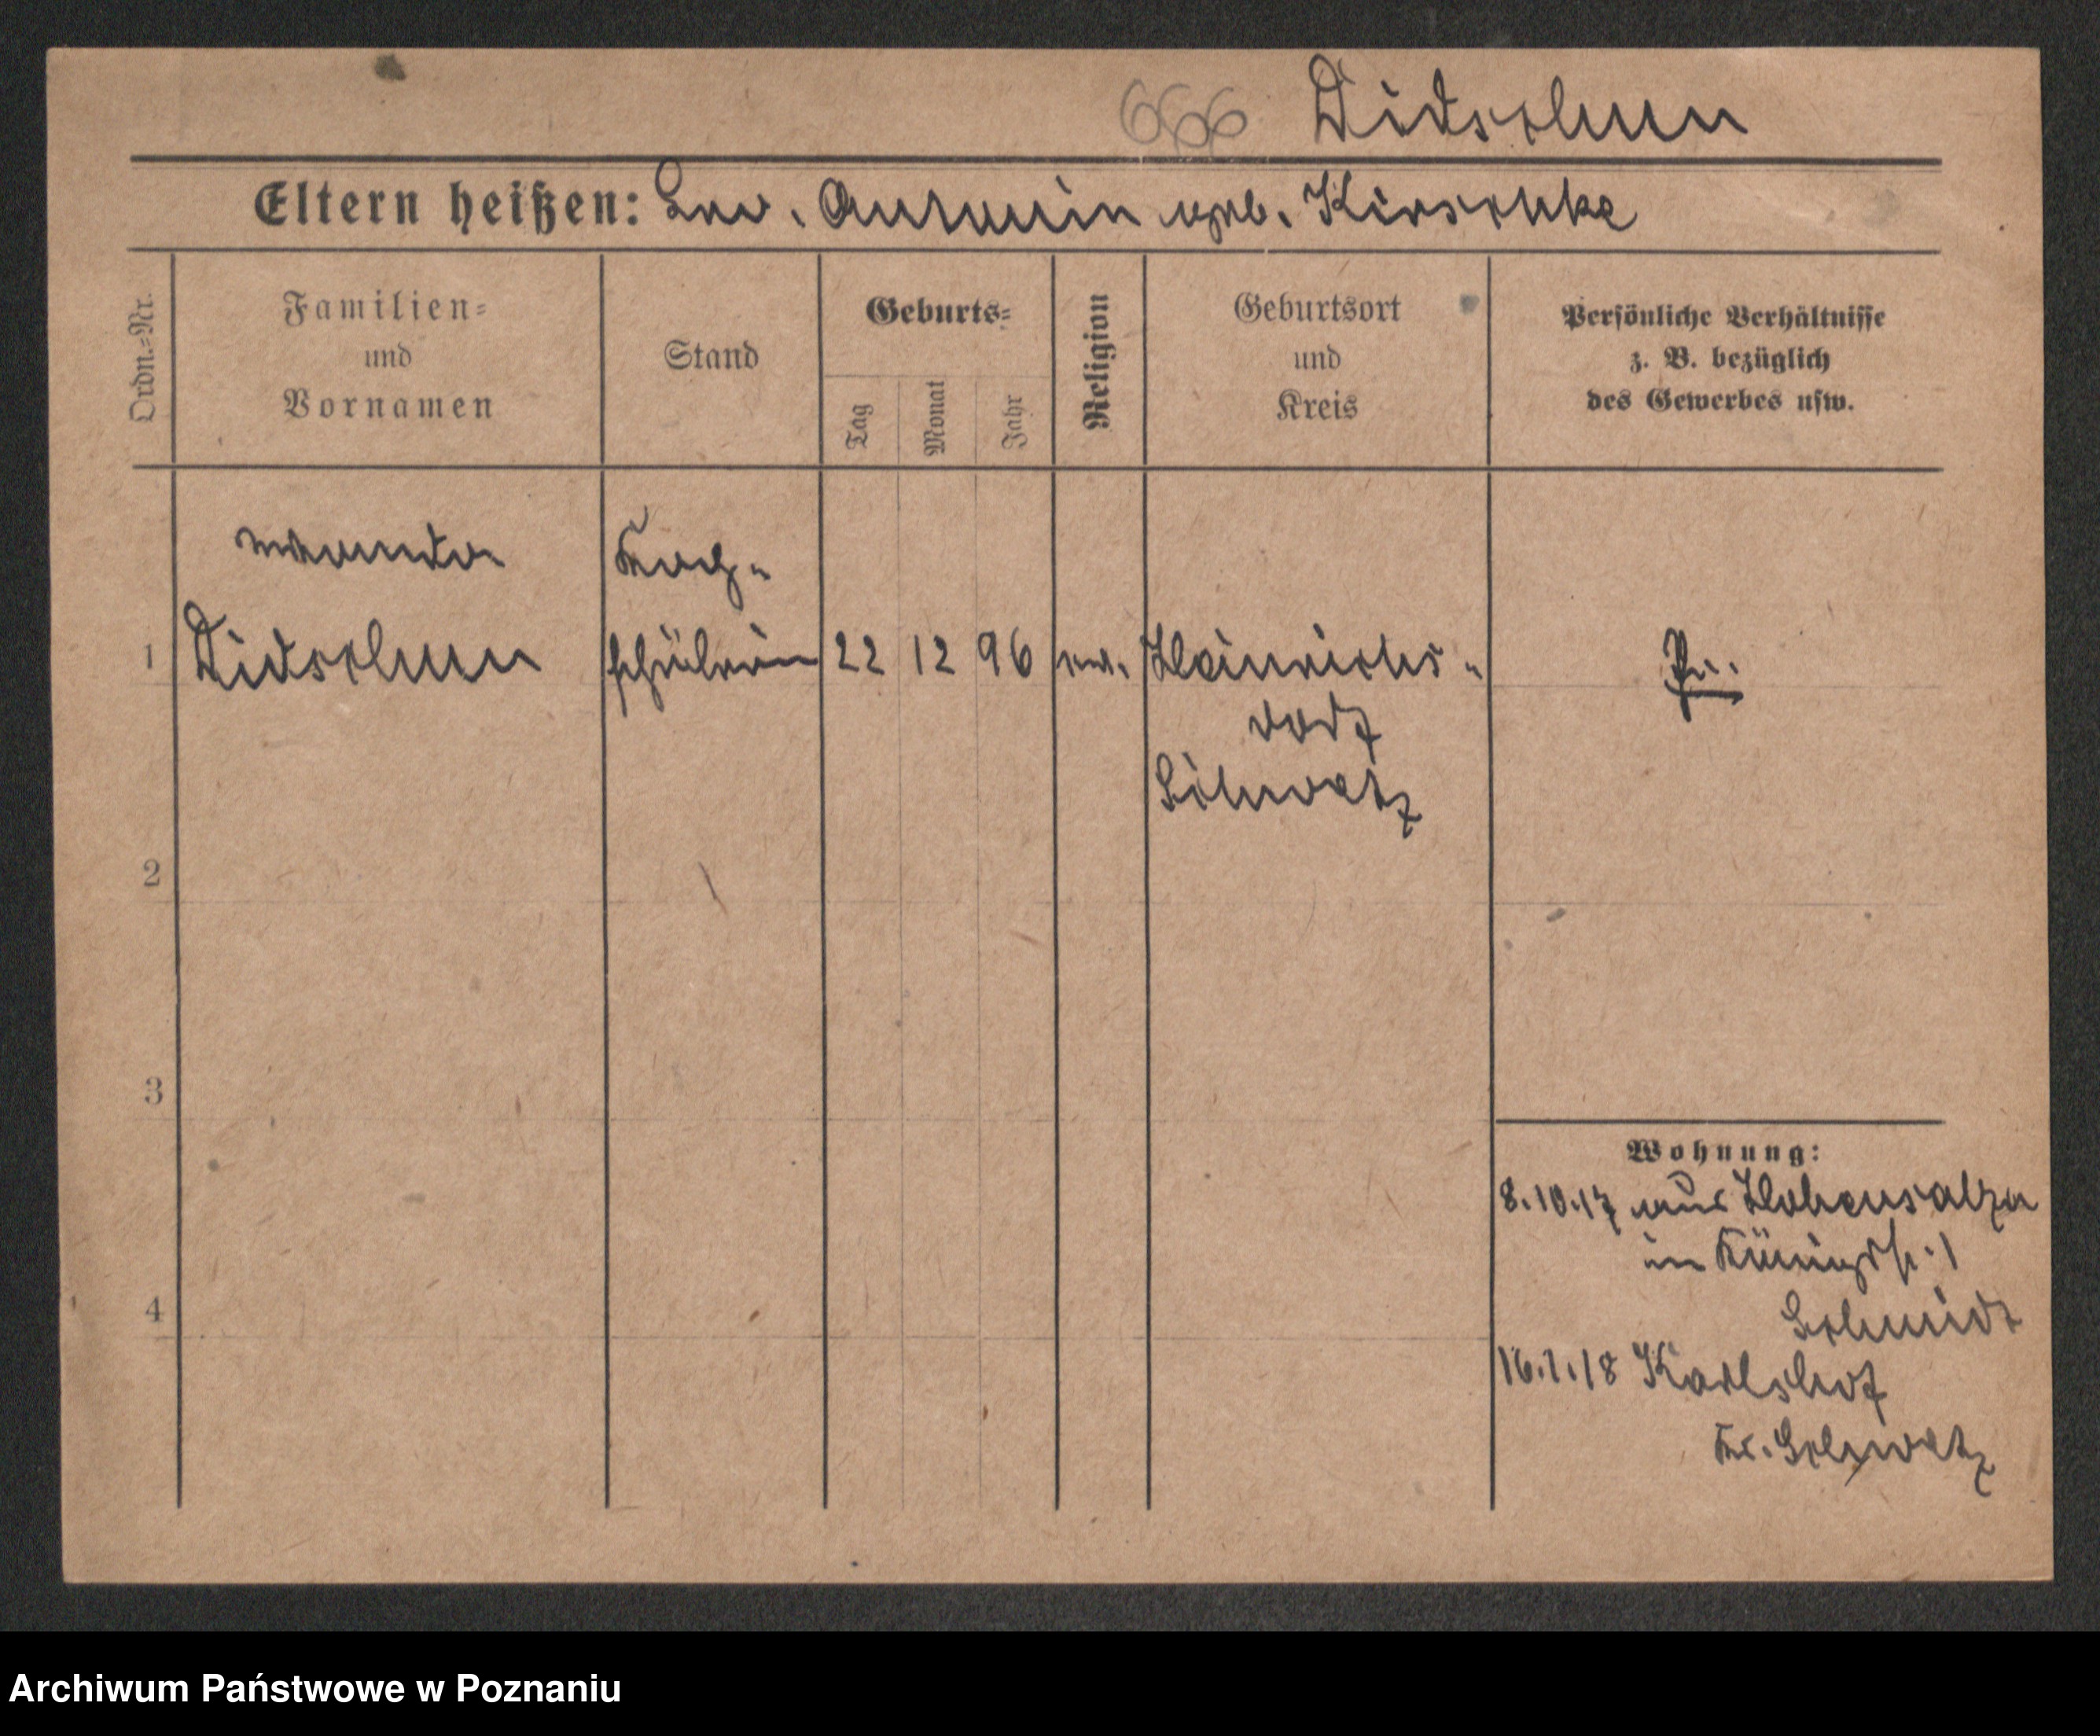 666 Didschun
Eltern heißen: Ed. geb. Kirschke
Ordn.=Nr.
Familien=
und
Vornamen
Stand
Geburts=
Tag
Monat
Jahr
Religion
Geburtsort
und
Kreis
Persönliche Verhältnisse
z. B. bezüglich
des Gewerbes usw.
Koch-
1 Didschun schülerin 22 12 96 ev. Heinrichs-
dorf
Schwetz
Pr.
2
3
4
Wohnung:
8.10.17 aus Hohensalza
in Königstr. 1
Schmidt
16.1.18 Karlshof
Kr. Schwetz
Archiwum Państwowe w Poznaniu